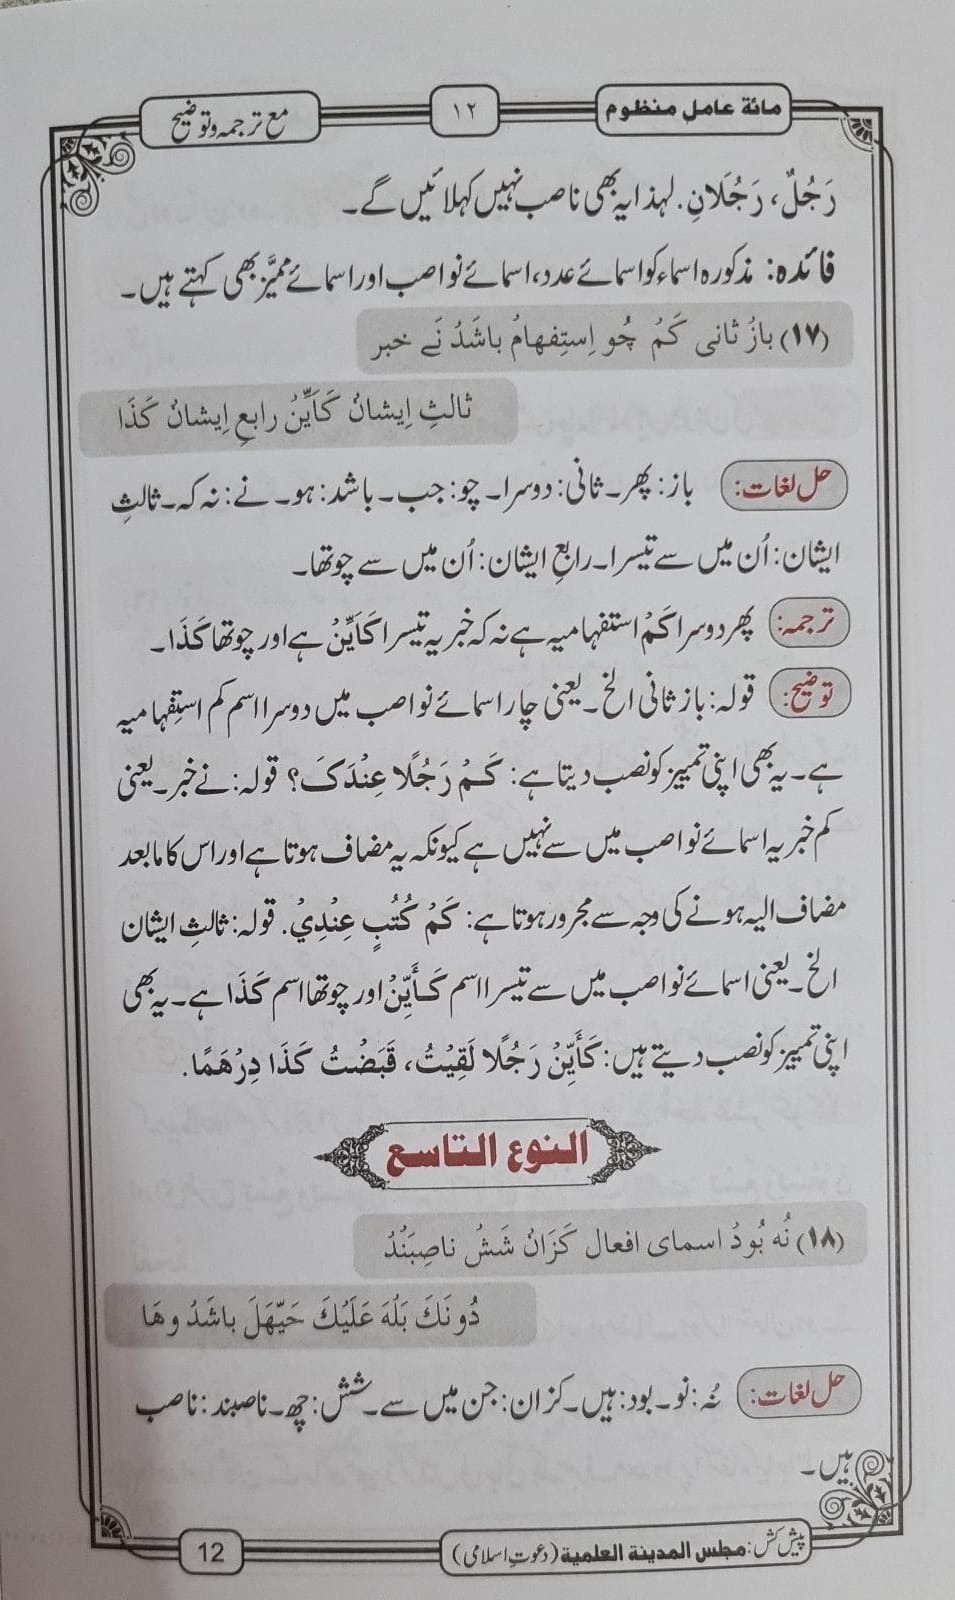 مائة عامل منظوم
۱۲
مع ترجمہ و توضیح
رَجُلٌ، رَجُلَانِ. لہذا یہ بھی ناصب نہیں کہلائیں گے۔
فائدہ: مذکورہ اسماء کو اسمائے عدد، اسمائے نواصب اور اسمائے ممیَّز بھی کہتے ہیں۔
(۱۷) بازْ ثانی کَمْ چُو اِستِفہامْ باشَدْ نَے خبر
ثالثِ اِیشانْ کَاَیِّنْ رابعِ اِیشانْ کَذَا
حل لغات: باز: پھر۔ ثانی: دوسرا۔ چو: جب۔ باشد: ہو۔ نے: نہ کہ۔ ثالثِ
ایشان: اُن میں سے تیسرا۔ رابعِ ایشان: اُن میں سے چوتھا۔
ترجمہ: پھر دوسرا کَمْ استفہامیہ ہے نہ کہ خبریہ تیسرا کَاَیِّنْ ہے اور چوتھا کَذَا۔
توضیح: قولہ: باز ثانی الخ۔ یعنی چار اسمائے نواصب میں دوسرا اسم کم استفہامیہ
ہے۔ یہ بھی اپنی تمییز کو نصب دیتا ہے: کَمْ رَجُلًا عِنْدَکَ؟ قولہ: نے خبر۔ یعنی
کم خبریہ اسمائے نواصب میں سے نہیں ہے کیونکہ یہ مضاف ہوتا ہے اور اس کا مابعد
مضاف الیہ ہونے کی وجہ سے مجرور ہوتا ہے: كَمْ كُتُبٍ عِنْدِيْ. قولہ: ثالثِ ایشان
الخ۔ یعنی اسمائے نواصب میں سے تیسرا اسم كَأَيِّنْ اور چوتھا اسم كَذَا ہے۔ یہ بھی
اپنی تمییز کو نصب دیتے ہیں: كَأَيِّنْ رَجُلًا لَقِيْتُ، قَبَضْتُ كَذَا دِرْهَمًا.
النوع التاسع
(۱۸) نُہ بُودْ اسمای افعال کَزَانْ شَشْ ناصِبَنْدْ
دُونَكَ بَلْهَ عَلَيْكَ حَيَّهَلَ باشَدْ وھَا
حل لغات: نُہ: نو۔ بود: ہیں۔ کزان: جن میں سے۔ شش: چھ۔ ناصبند: ناصب
ہیں۔
پیش کش: مجلس المدینة العلمیة (دعوتِ اسلامی)
12